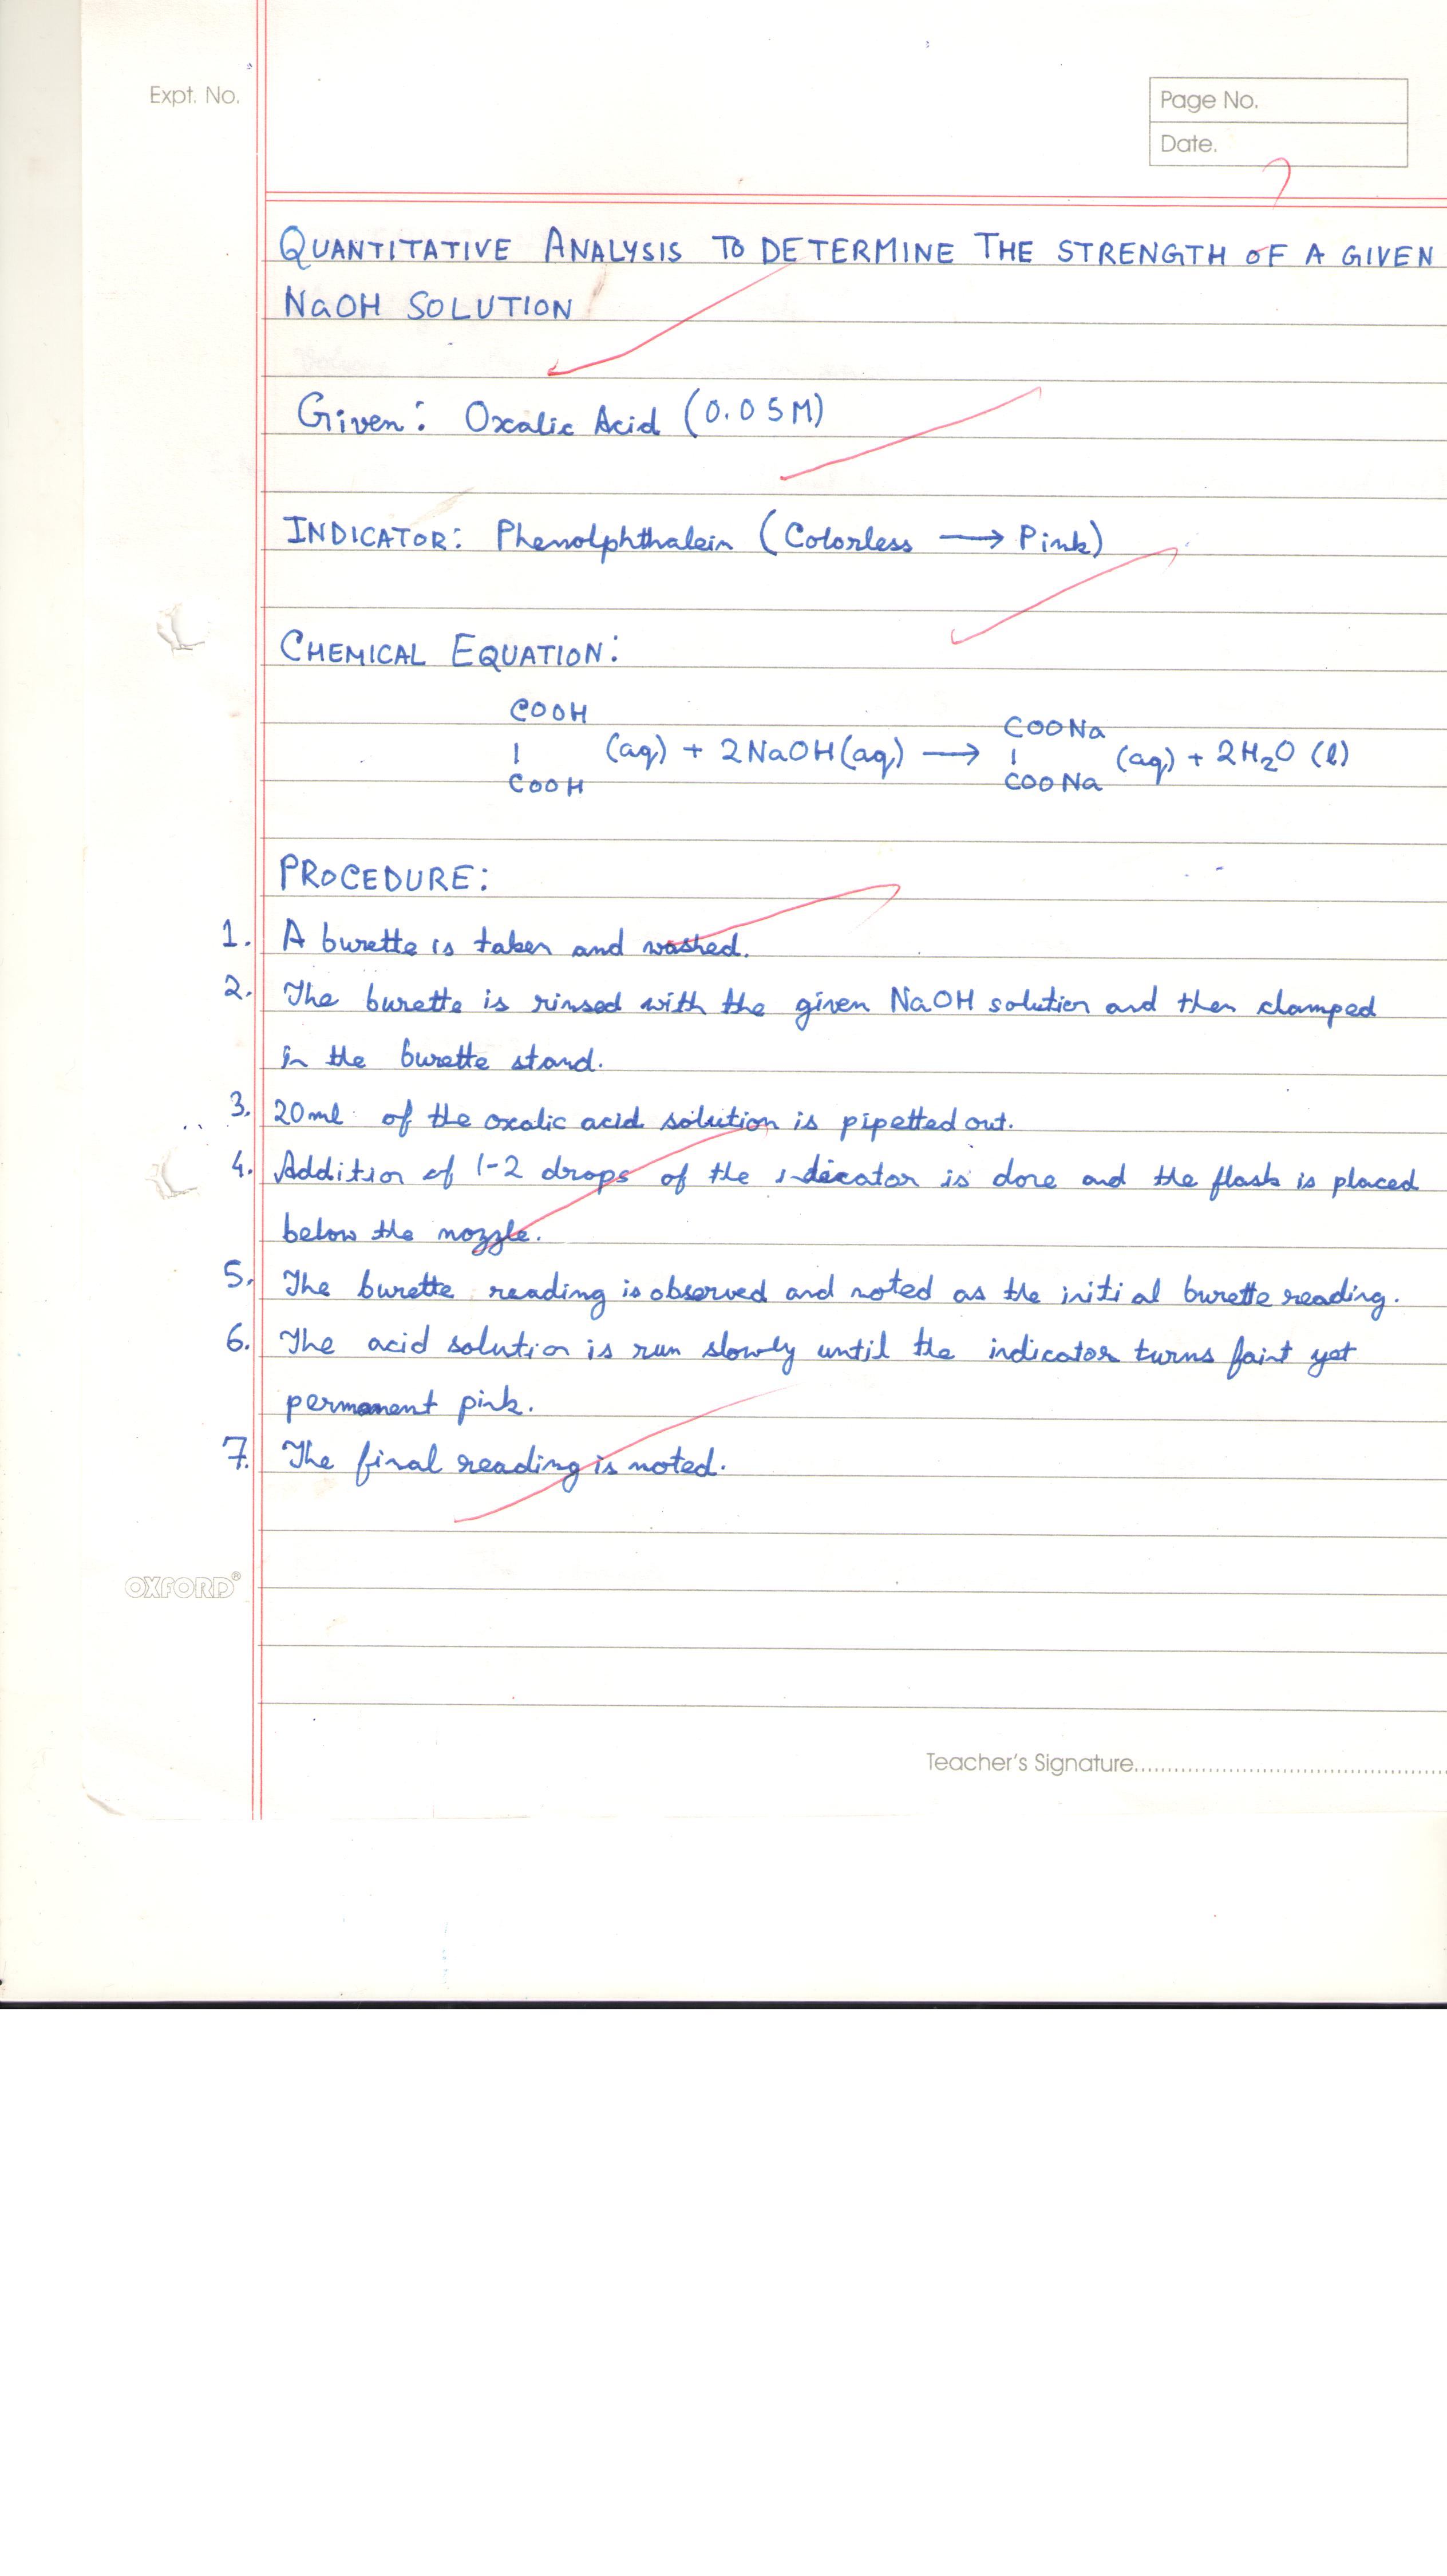 Expt. No.
Page No.
Date.
QUANTITATIVE ANALYSIS TO DETERMINE THE STRENGTH OF A GIVEN
NaOH SOLUTION
Given: Oxalic Acid (0.05M)
INDICATOR: Phenolphthalein (Colorless → Pink)
CHEMICAL EQUATION:
COOH COONa
| (aq) + 2NaOH(aq) → | (aq) + 2H₂O (l)
COOH COONa
PROCEDURE:
1. A burette is taken and washed.
2. The burette is rinsed with the given NaOH solution and then clamped
in the burette stand.
3. 20ml of the oxalic acid solution is pipetted out.
4. Addition of 1-2 drops of the indicator is done and the flask is placed
below the nozzle.
5. The burette reading is observed and noted as the initial burette reading.
6. The acid solution is run slowly until the indicator turns faint yet
permanent pink.
7. The final reading is noted.
OXFORD®
Teacher's Signature